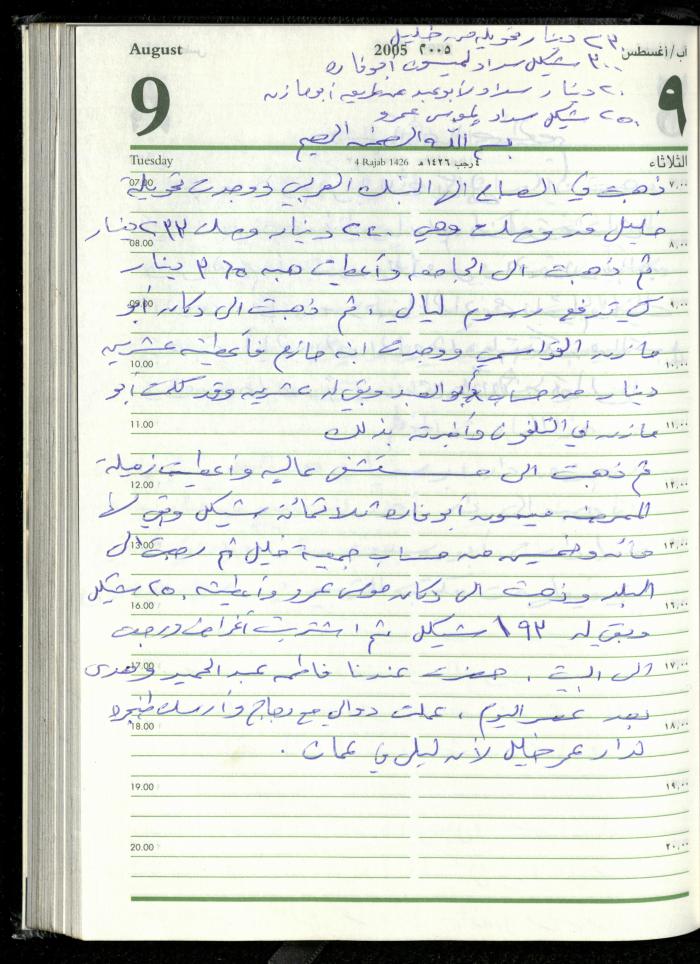 ٢٣٠ دينار تحويله من خليل
August 2005 ٢٠٠٥ آب/أغسطس
٣٠٠ شيكل سداد لميسون أبو فاره
٢٠ دينار سداد لأبو عبد عن طريق أبو مازن
9 ٩
٢٥٠ شيكل سداد لموسى عمرو
بسم الله الرحمن الرحيم
Tuesday 4 Rajab 1426 ٤ رجب ١٤٢٦ هـ الثلاثاء
07.00 ذهبت في الصباح الى البنك العربي ووجدت تحويلة ٧,٠٠
خليل قد وصلت وهي ٢٤٠ دينار وصل ٢٣٣ دينار
08.00 ٨,٠٠
ثم ذهبت الى الجامعه وأعطيت هبه ٣٦٥ دينار
09.00 كي تدفع رسوم ليالي . ثم ذهبت الى دكان أبو ٩,٠٠
مازن القواسمي ووجدت ابنه حازم فأعطيته عشرين
10.00 ١٠,٠٠
دينار من حساب أبو العبد وبقي له عشرين وقد كلمت أبو
11.00 مازن في التلفون وأخبرته بذلك ١١,٠٠
ثم ذهبت الى مستشفى عاليه وأعطيت زميلة
12.00 ١٢,٠٠
الممرضه ميسون أبو فاره ثلاثمائة شيكل وبقي لها
13.00 مائه وخمسين من حساب جمعية خليل ثم رجعت الى ١٣,٠٠
البلد وذهبت الى دكان موسى عمرو وأعطيته ٢٥٠ شيكل
16.00 ١٦,٠٠
وبقي له ١٩٣ شيكل ثم اشتريت أغراض ورجعت
17.00 الى البيت . حضرت عندنا فاطمه عبد الحميد وهدى ١٧,٠٠
بعد عصر اليوم ، عملت دوالي مع دجاج وأرسلت طنجره
18.00 ١٨,٠٠
لدار عمر خليل لأن ليلى في عمان .
19.00 ١٩,٠٠
20.00 ٢٠,٠٠